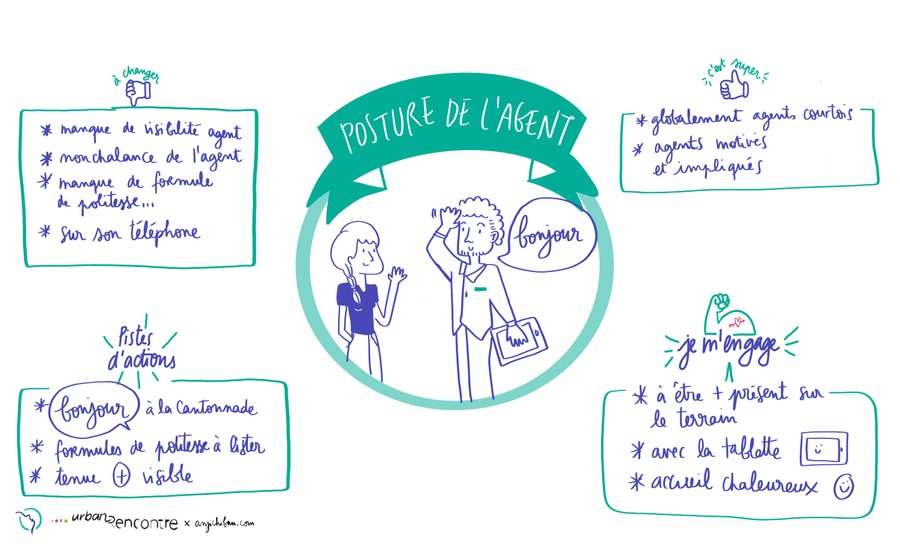 POSTURE DE L'AGENT
à changer
* manque de visibilité agent
* nonchalance de l'agent
* manque de formule
de politesse...
* sur son téléphone
c'est super
* globalement agents courtois
* agents motivés
et impliqués
bonjour
Pistes
d'actions
* bonjour à la cantonnade
* formules de politesse à lister
* tenue + visible
je m'engage
* à être + présent sur
le terrain
* avec la tablette
* accueil chaleureux
urban Rencontre x